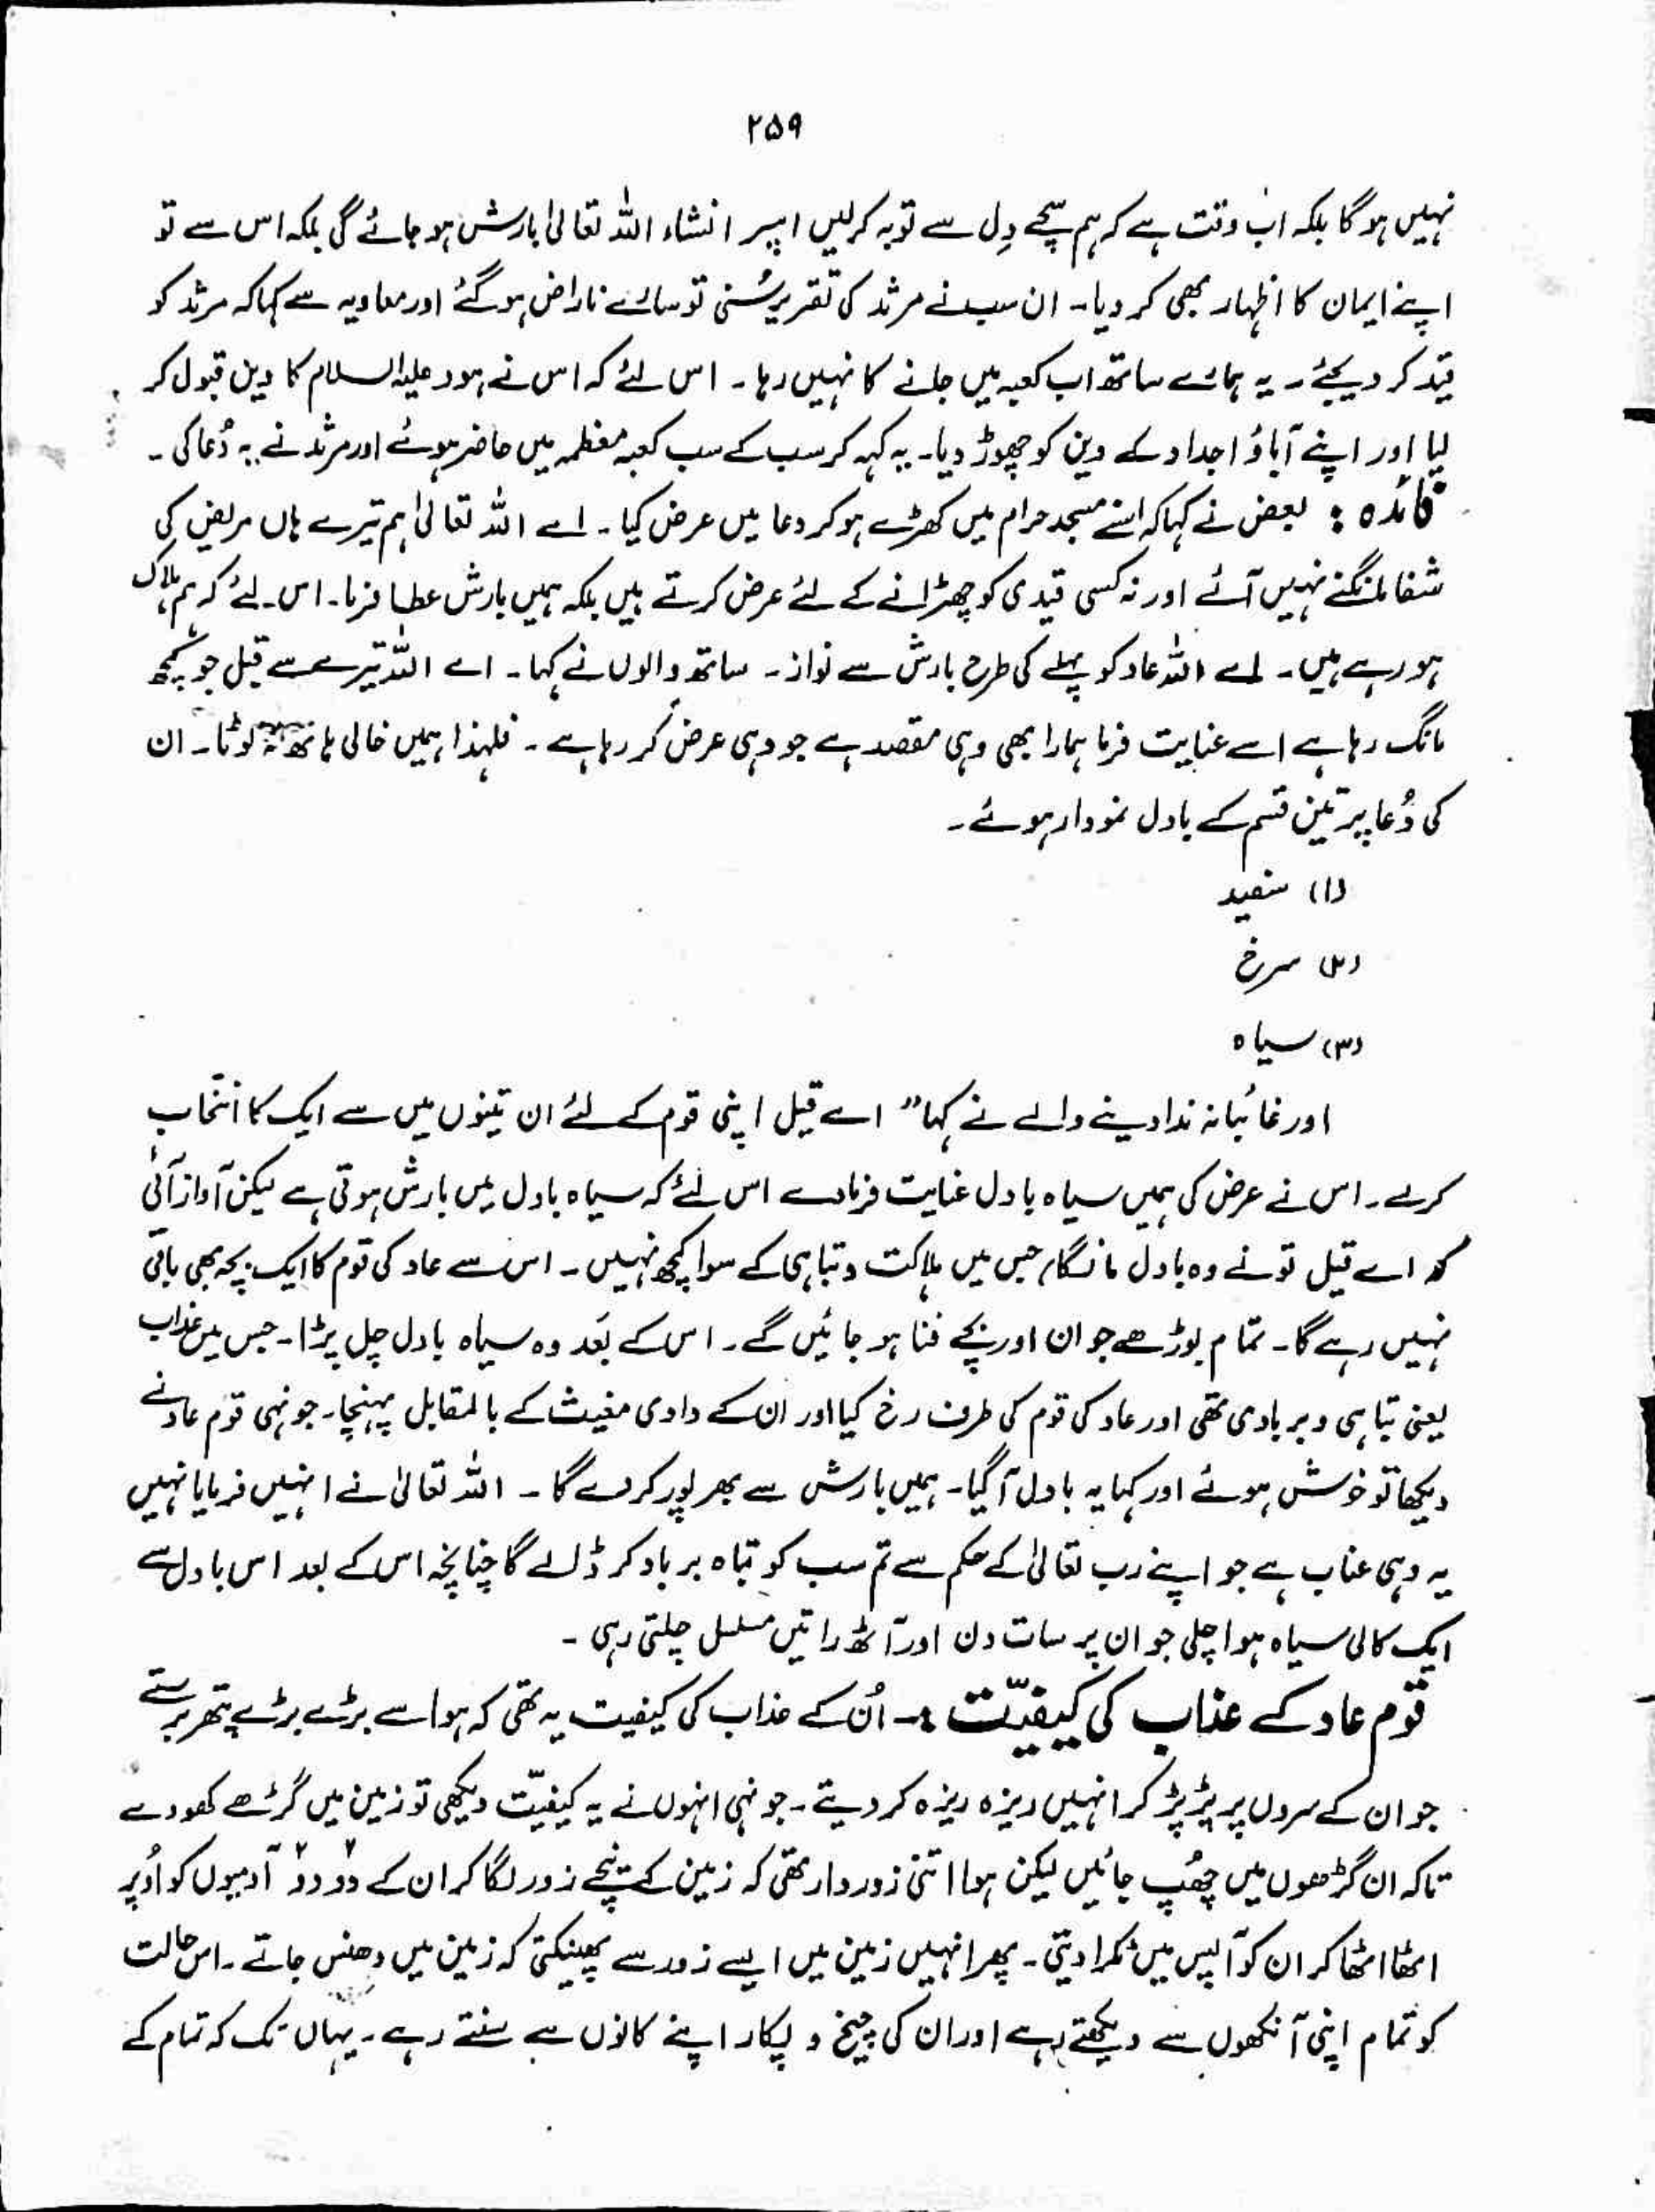 ۲۵۹
نہیں ہوگا بلکہ اب وقت ہے کہ ہم سچے دِل سے توبہ کرلیں اپیر انشاء اللہ تعالیٰ بارش ہو جائے گی بلکہ اس سے تو
اپنے ایمان کا اظہار بھی کر دیا۔ ان سب نے مرثد کی تقریر سُنی تو سارے ناراض ہوگئے اور معاویہ سے کہا کہ مرثد کو
قید کر دیجئے۔ یہ ہمارے ساتھ اب کعبہ میں جانے کا نہیں رہا۔ اس لئے کہ اس نے ہود علیہ السلام کا دین قبول کر
لیا اور اپنے آباؤ اجداد کے دین کو چھوڑ دیا۔ یہ کہہ کر سب کے سب کعبہ معظمہ میں حاضر ہوئے اور مرثد نے یہ دُعا کی۔
فائدہ : بعض نے کہا کہ اسنے مسجد حرام میں کھڑے ہوکر دعا میں عرض کیا۔ اے اللہ تعالیٰ ہم تیرے ہاں مریض کی
شفا مانگنے نہیں آئے اور نہ کسی قیدی کو چھڑانے کے لئے عرض کرتے ہیں بلکہ ہمیں بارش عطا فرما۔ اس لئے کہ ہم ہلاک
ہو رہے ہیں۔ اے اللہ عاد کو پہلے کی طرح بارش سے نواز۔ ساتھ والوں نے کہا۔ اے اللہ تیرے سے قیل جو کچھ
مانگ رہا ہے اسے عنایت فرما ہمارا بھی وہی مقصد ہے جو وہی عرض کر رہا ہے۔ فلہذا ہمیں خالی ہاتھ نہ لوٹا۔ ان
کی دُعا پر تین قسم کے بادل نمودار ہوئے۔
(۱) سفید
(۲) سرخ
(۳) سیاہ
اور غائبانہ ندا دینے والے نے کہا" اے قیل اپنی قوم کے لئے ان تینوں میں سے ایک کا انتخاب
کرلے۔ اس نے عرض کی ہمیں سیاہ بادل عنایت فرمادے اس لئے کہ سیاہ بادل میں بارش ہوتی ہے لیکن آواز آئی
کہ اے قیل تو نے وہ بادل مانگا جس میں ہلاکت و تباہی کے سوا کچھ نہیں۔ اس سے عاد کی قوم کا ایک بچہ بھی باقی
نہیں رہے گا۔ تمام بوڑھے جوان اور بچے فنا ہو جائیں گے۔ اس کے بعد وہ سیاہ بادل چل پڑا۔ جس میں عذاب
یعنی تباہی و بربادی تھی اور عاد کی قوم کی طرف رخ کیا اور ان کے وادی مغیث کے بالمقابل پہنچا۔ جونہی قوم عاد نے
دیکھا تو خوش ہوئے اور کہا یہ بادل آگیا۔ ہمیں بارش سے بھرپور کردے گا۔ اللہ تعالیٰ نے انہیں فرمایا نہیں
یہ وہی عتاب ہے جو اپنے رب تعالیٰ کے حکم سے تم سب کو تباہ برباد کر ڈالے گا چنانچہ اس کے بعد اس بادل سے
ایک کالی سیاہ ہوا چلی جو ان پر سات دن اور آٹھ راتیں مسلسل چلتی رہی۔
قوم عاد کے عذاب کی کیفیّت :۔ اُن کے عذاب کی کیفیت یہ تھی کہ ہوا سے بڑے بڑے پتھر برستے
جو ان کے سروں پر پڑ پڑ کر انہیں ریزہ ریزہ کر دیتے۔ جونہی انہوں نے یہ کیفیّت دیکھی تو زمین میں گڑھے کھودے
تاکہ ان گڑھوں میں چھُپ جائیں لیکن ہوا اتنی زوردار تھی کہ زمین کے نیچے زور لگا کر ان کے دو دو آدمیوں کو اُوپر
اٹھا اٹھا کر ان کو آپس میں ٹکرا دیتی۔ پھر انہیں زمین میں ایسے زور سے پھینکتی کہ زمین میں دھنس جاتے۔ اس حالت
کو تمام اپنی آنکھوں سے دیکھتے رہے اور ان کی چیخ و پکار اپنے کانوں سے سنتے رہے۔ یہاں تک کہ تمام کے